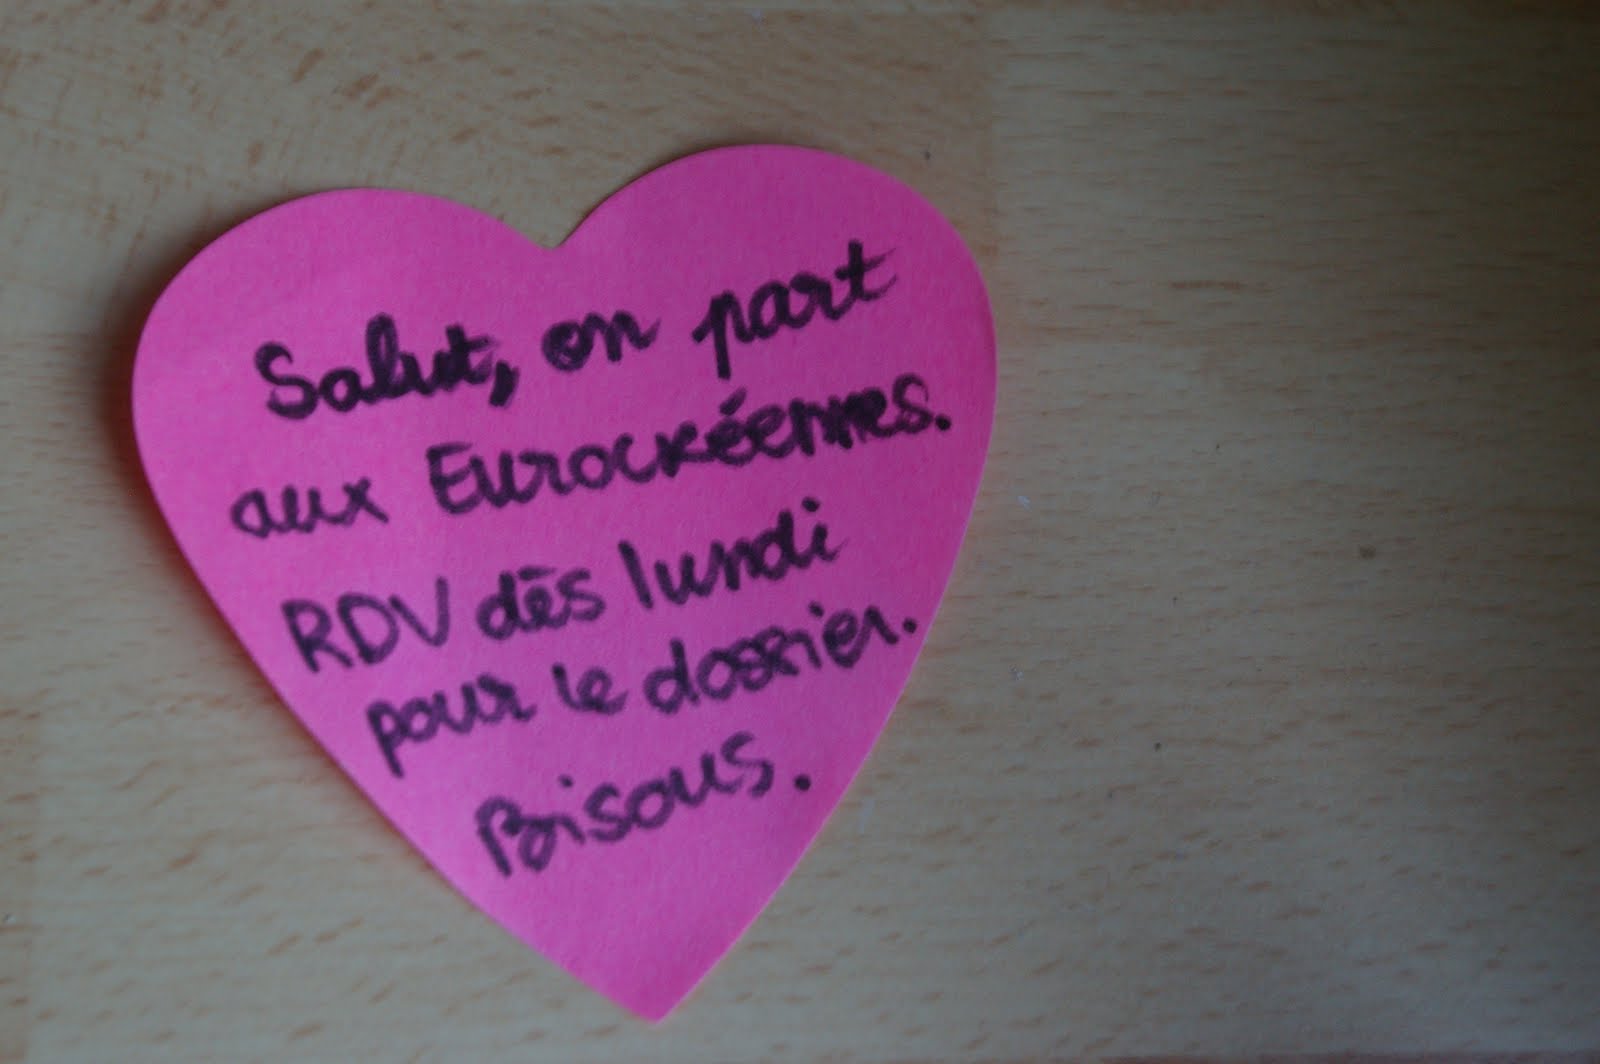 Salut, on part
aux Eurockéennes.
RDV dès lundi
pour le dossier.
Bisous.